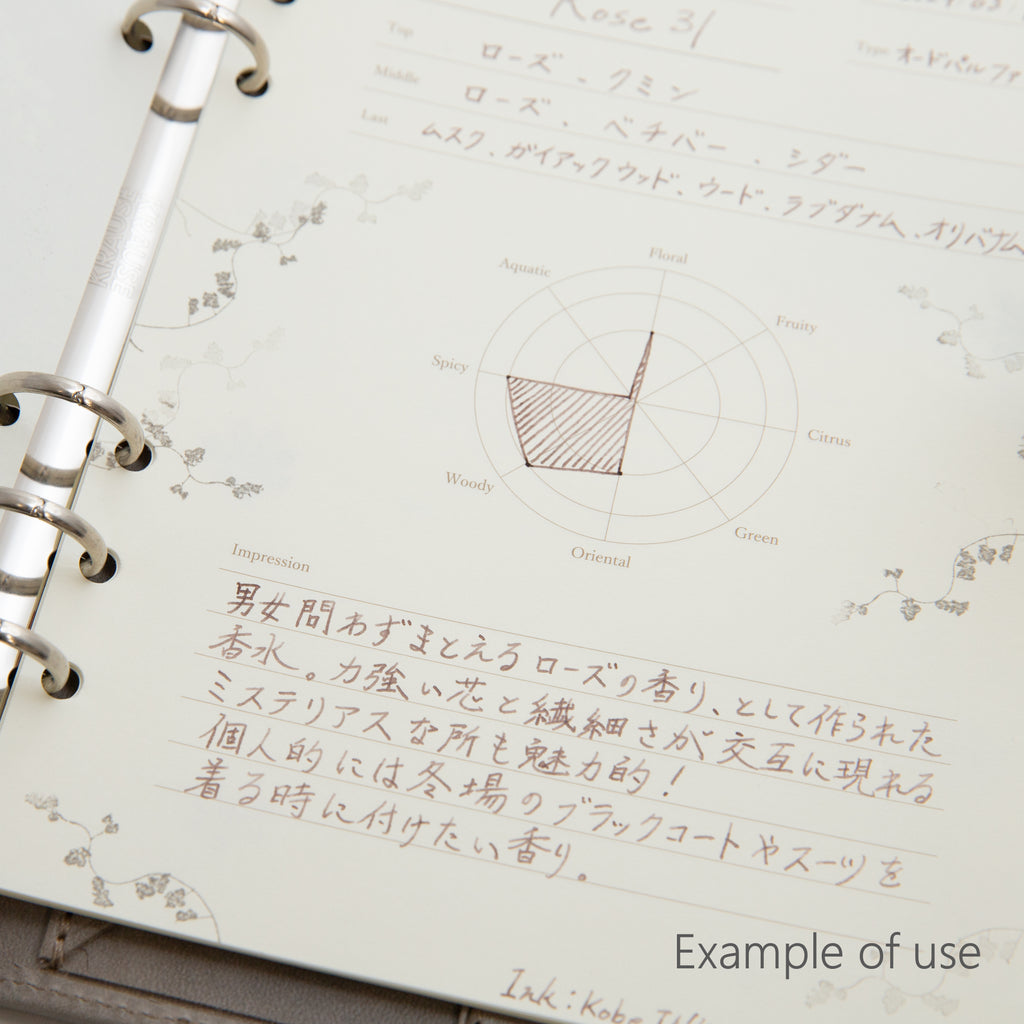 Rose 31
Top ローズ、クミン
Type オードパルファ
Middle ローズ、ベチバー、シダー
Last ムスク、ガイアックウッド、ウード、ラブダナム、オリバナム
Floral
Aquatic
Fruity
Spicy
Citrus
Woody
Green
Oriental
Impression
男女問わずまとえるローズの香り、として作られた
香水。力強い芯と繊細さが交互に現れる
ミステリアスな所も魅力的!
個人的には冬場のブラックコートやスーツを
着る時に付けたい香り。
KRAUSE
Example of use
Ink: Kobe